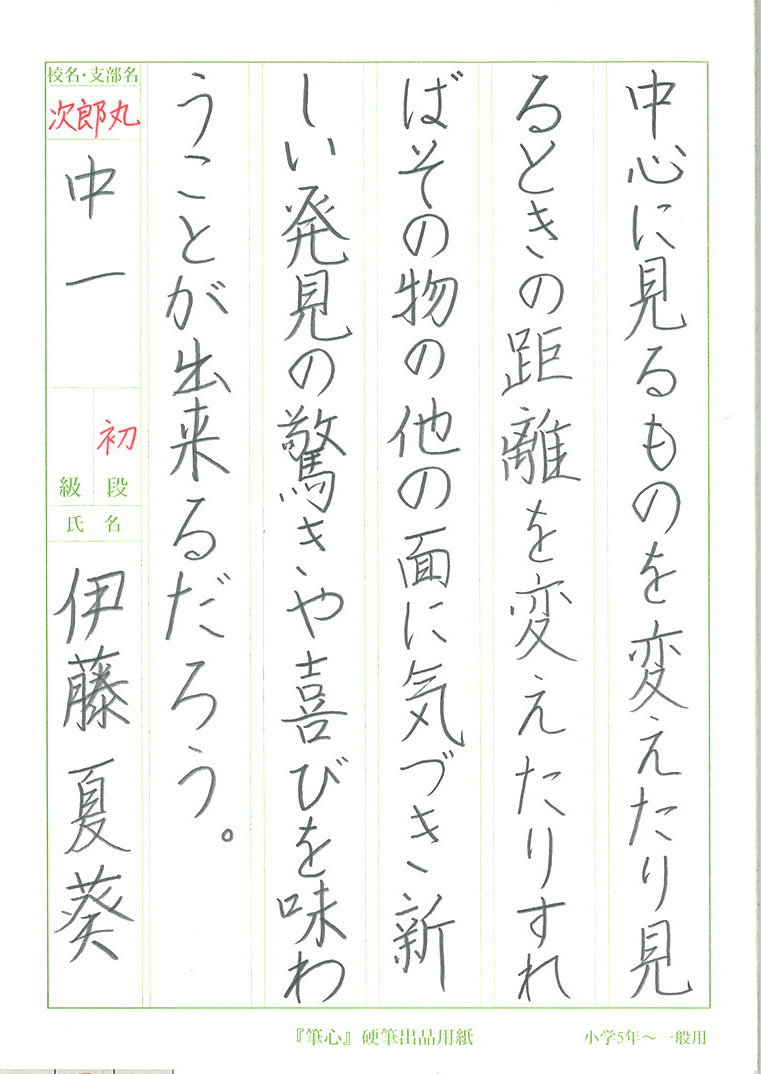 中心に見るものを変えたり見
るときの距離を変えたりすれ
ばその物の他の面に気づき、新
しい発見の驚きや喜びを味わ
うことが出来るだろう。
校名・支部名
次郎丸
中一
初
級 段
氏名
伊藤夏葵
『筆心』硬筆出品用紙
小学5年〜一般用